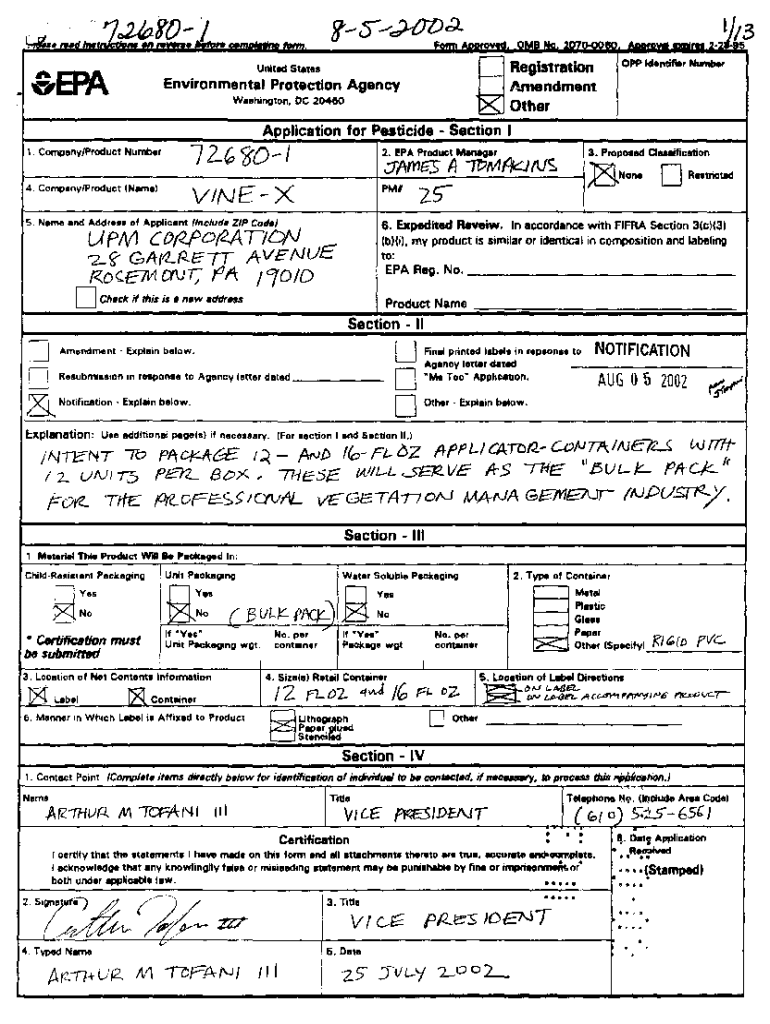 72680-1 8-5-2002 1/13
Please read instructions on reverse before completing form. Form Approved. OMB No. 2070-0060. Approval expires 2-28-95
EPA
United States
Environmental Protection Agency
Washington, DC 20460
Registration
Amendment
Other
OPP Identifier Number
Application for Pesticide - Section I
1. Company/Product Number
72680-1
2. EPA Product Manager
JAMES A TOMAKINS
3. Proposed Classification
None Restricted
4. Company/Product (Name)
VINE-X
PM#
25
5. Name and Address of Applicant (Include ZIP Code)
UPM CORPORATION
28 GARRETT AVENUE
ROSEMONT, PA 19010
Check if this is a new address
6. Expedited Reveiw. In accordance with FIFRA Section 3(c)(3)
(b)(i), my product is similar or identical in composition and labeling
to:
EPA Reg. No.
Product Name
Section - II
Amendment - Explain below.
Resubmission in response to Agency letter dated
Notification - Explain below.
Final printed labels in repsonse to
Agency letter dated
"Me Too" Application.
Other - Explain below.
NOTIFICATION
AUG 05 2002
Explanation: Use additional page(s) if necessary. (For section I and Section II.)
INTENT TO PACKAGE 12- AND 16-FL OZ APPLICATOR-CONTAINERS WITH
12 UNITS PER BOX. THESE WILL SERVE AS THE "BULK PACK"
FOR THE PROFESSIONAL VEGETATION MANAGEMENT INDUSTRY.
Section - III
1 Material This Product Will Be Packaged In:
Child-Resistant Packaging
Yes
No
* Certification must
be submitted
Unit Packaging
Yes
No (BULK PACK)
If "Yes" No. per
Unit Packaging wgt. container
Water Soluble Packaging
Yes
No
If "Yes" No. per
Package wgt container
2. Type of Container
Metal
Plastic
Glass
Paper
Other (Specify) RIGID PVC
3. Location of Net Contents Information
Label Container
4. Size(s) Retail Container
12 FL OZ and 16 FL OZ
5. Location of Label Directions
ON LABEL
ON LABEL ACCOMPANYING PRODUCT
6. Manner in Which Label is Affixed to Product
Lithograph
Paper glued
Stenciled
Other
Section - IV
1. Contact Point (Complete items directly below for identification of individual to be contacted, if necessary, to process this application.)
Name
ARTHUR M TOFANI III
Title
VICE PRESIDENT
Telephone No. (Include Area Code)
(610) 525-6561
Certification
I certify that the statements I have made on this form and all attachments thereto are true, accurate and complete.
I acknowledge that any knowlingily false or misleading statement may be punishable by fine or imprisonment or
both under applicable law.
6. Date Application
Received
(Stamped)
2. Signature
3. Title
VICE PRESIDENT
4. Typed Name
ARTHUR M TOFANI III
5. Date
25 JULY 2002